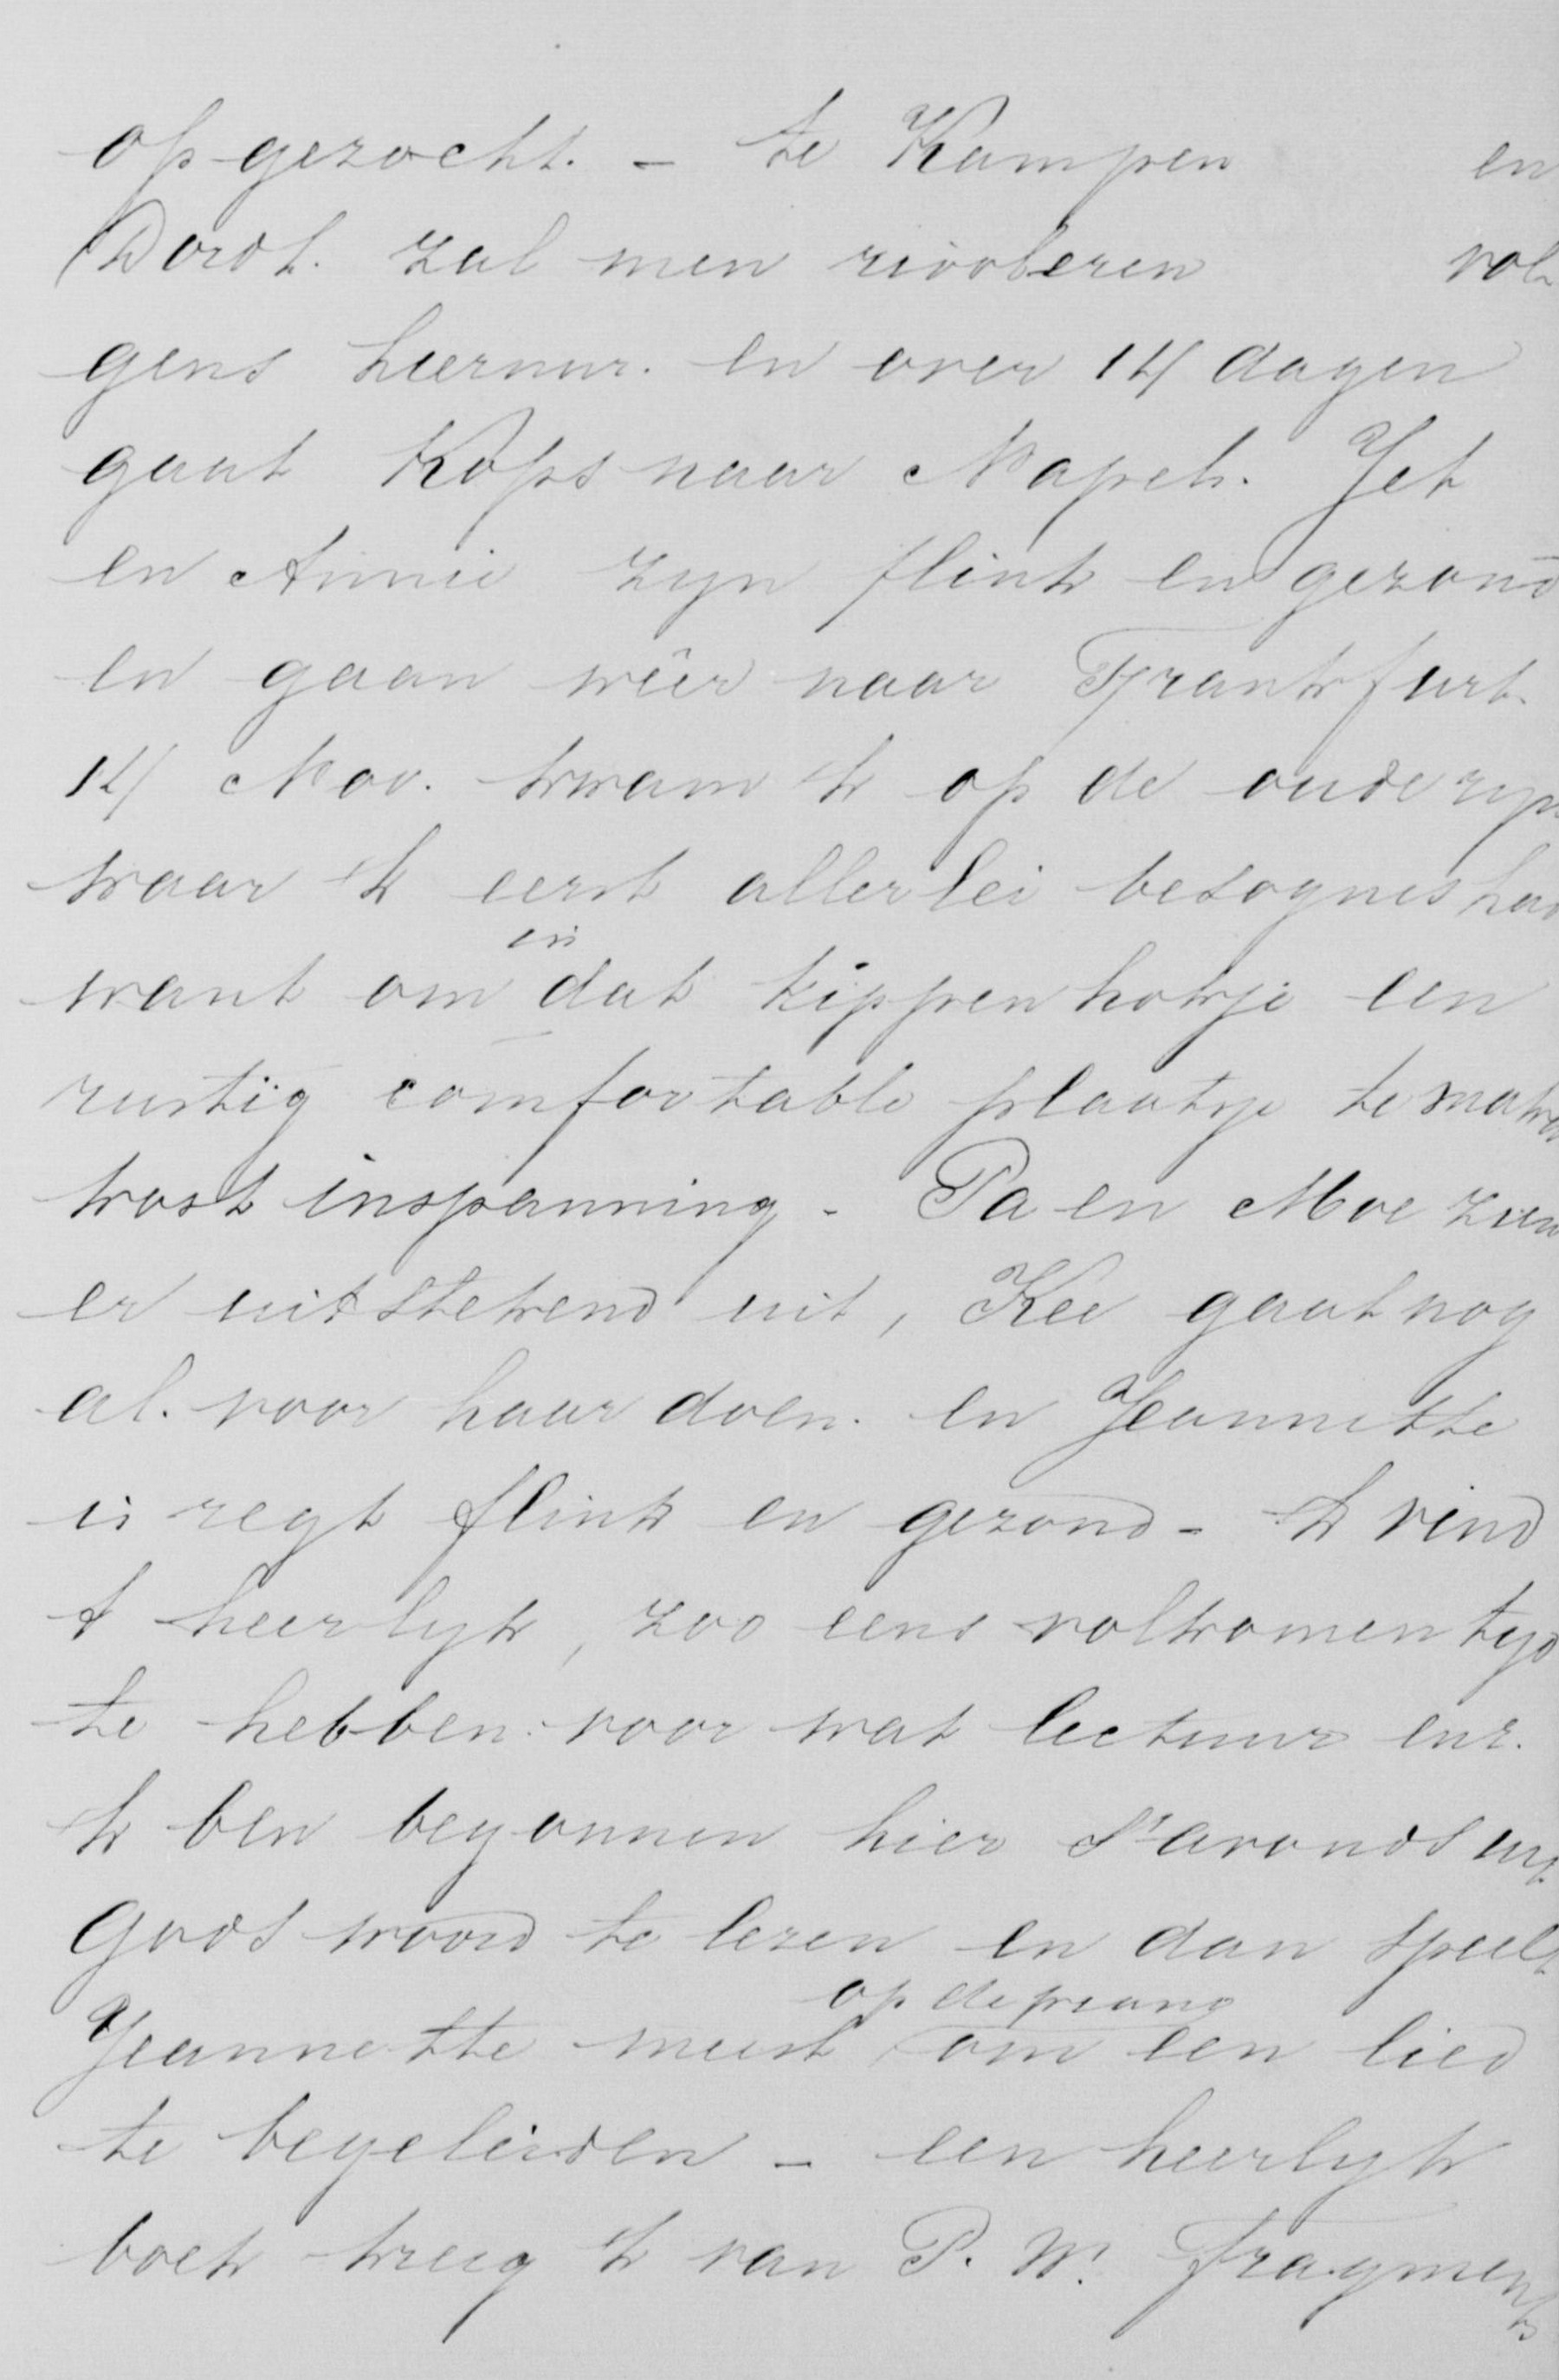 opgezocht. – te Kampen en
Dordt. zal men riooleren vol
gens Liernur. en over 14 dagen
gaat Kops naar Napels. Jet
en Annie zyn flink en gezond
en gaan wêer naar Frankfurt.
14 Nov. kwam ik op de oude zyp
waar ik eerst allerlei besognes had
want om in dat kippenhokje een
rustig comfortable plaatsje te maken
kost inspanning – Pa en Moe zien
er uitstekend uit, Kee gaat nog
al. voor haar doen. en Jeannette
is regt flink en gezond – Ik vind
t heerlyk, zoo eens volkomen tyd
te hebben voor wat lectuur enz.
Ik ben begonnen hier s'avonds uit
Gods woord te lezen en dan speelt
Jeannette meest op de piano om een lied
te begeleiden – een heerlyk
boek kreeg ik van P. W. Fragments